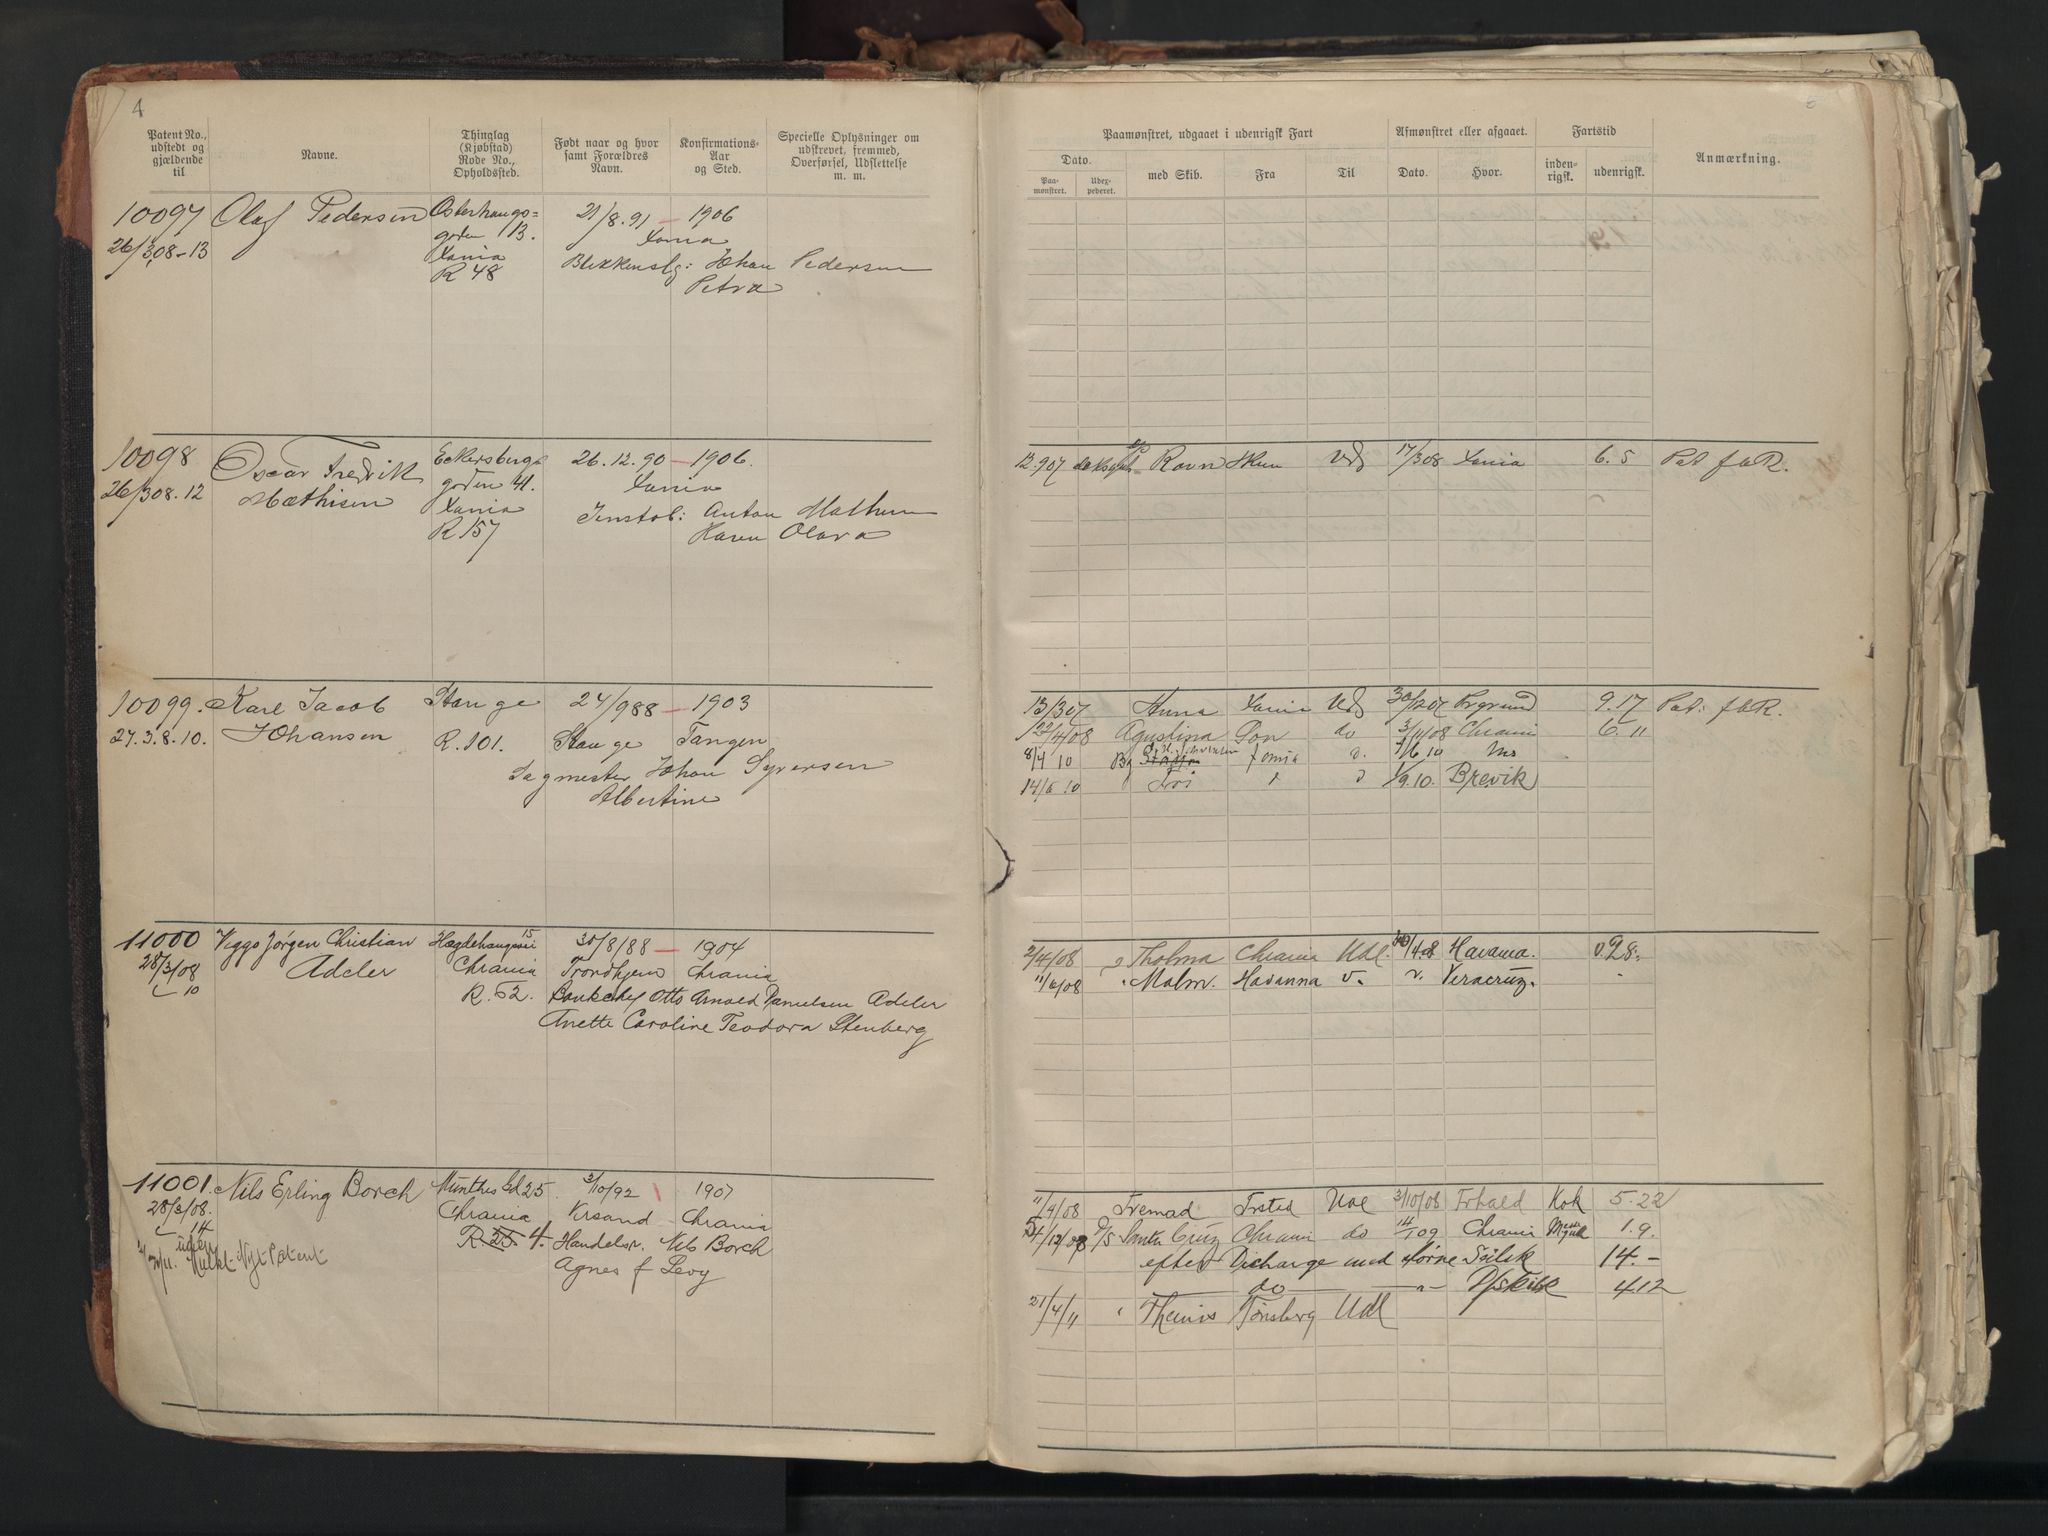 4
Patent No., udstedt og gjældende til
Navne.
Thinglag (Kjøbstad) Rode No., Opholdssted.
Født naar og hvor samt Forældres Navn.
Konfirmations- Aar og Sted.
Specielle Oplysninger om udskrevet, fremmed, Overførsel, Udslettelse m. m.
10097 Olaf Pedersen Osterhaugs= 21/8.91 — 1906
gaden 13. Xania
26/3.08-13 Xania Blikkenslg: Johan Pedersen
R 48 Petra
10098 Oscar Fredrik Eckersbergs 26.12.90 — 1906.
26/3 08.12 Mathisen gaden 41. Xania
Xania Anton
R 157 Karen Olava
10099. Karl Jacob Stange 24/9 88 — 1903
27.3.8.10. Johansen R.101. Stange Tangen
Sagmester Johan Syversen
Albertine
11000 Viggo Jørgen Christian Hægdehaugsvei 15 30/8/88 — 1904
28/3/08 Adeler Chrania Trondhjem Chrania
10 R. 52. Otto Arnold Danielsen Adeler
Anette Caroline Teodora Stenberg
11001. Nils Erling Borch Munthes Gd 25 3/10/92 1907
28/3/08. Chrania Krsand Chrania
14 R. 25 4. Handelsr. Nils Borch
Nyt Patent Agnes f Levy
Paamønstret, udgaaet i udenrigsk Fart
Afmønstret eller afgaaet.
Fartstid
Anmærkning.
Dato.
Paa- mønstret.
Udex- pederet.
med Skib.
Fra
Til
Dato.
Hvor.
inden- rigsk.
udenrigsk.
12.907 Ravn Udl 17/3 08 Xania 6. 5 Pat f h R.
13/3 07 Anna Xania Udl 30/12 07 Prgrund 9.17 Pat: f h R.
22/4/08 Agustina Pon do 3/11/08 Chrania 6. 11
8/4 10 Xania 1/6 10
14/6 10 Fri 1/9.10. Brevik
2/4/08 Tholma Chrania Udl. Havana.
11/6/08 Malm. Havanna v. v. Veracruz.
11/4/08 Fremad Frsted Udl 3/10/08 Frhald Kok 5.22
D/S Santa Cruz Chrania do 14/1 09 Chrania 1.9.
efter Dicharge med 14.-
do 4.12
21/4/11 Themis Tønsberg Udl